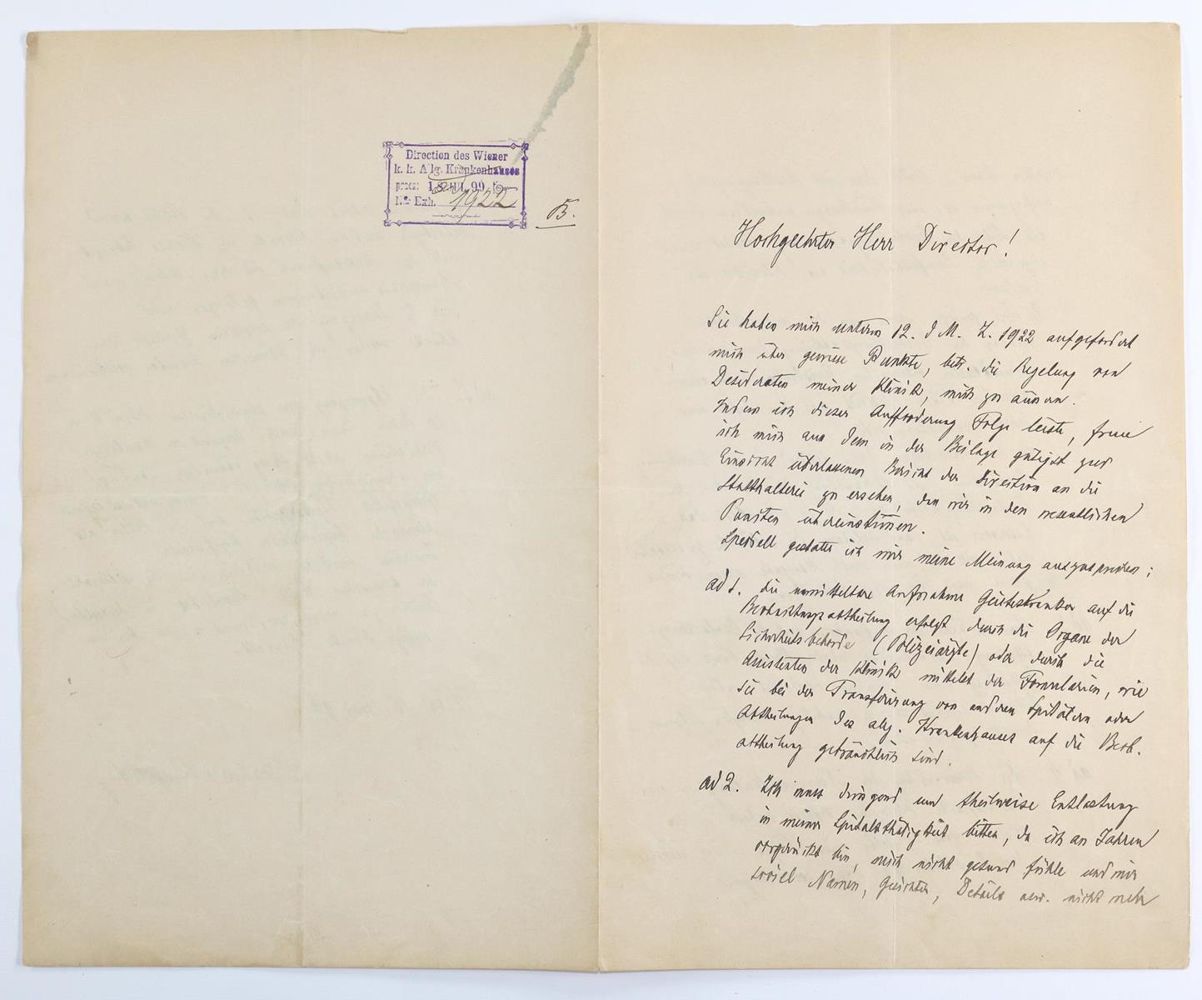 Direction des Wiener
k. k. Allg. Krankenhauses
praes: 99
Nº Exh. 1922
B.
Hochgeehrter Herr Director!
Sie haben mich unterm 12. d M. Z. 1922 aufgefordert
mich über gewisse Punkte, betr. die Regelung von
Desideraten meiner Klinik, mich zu äussern.
Indem ich dieser Aufforderung Folge leiste, freue
ich mich aus dem in der Beilage gütigst zur
Einsicht überlassenen Bericht der Direction an die
Statthalterei zu ersehen, dass wir in den wesentlichen
Punkten übereinstimmen.
Speciell gestatte ich mir meine Meinung auszusprechen:
ad 1. die unmittelbare Aufnahme Geisteskranker auf die
Beobachtungsabtheilung erfolgt durch die Organe der
Sicherheitsbehörde (Polizeiärzte) oder durch die
Assistenten der Klinik mittelst der Formularien, wie
sie bei der Transferirung von anderen Spitälern oder
Abtheilungen des allg. Krankenhauses auf die Beob.
abtheilung gebräuchlich sind.
ad 2. Ich muss dringend um theilweise Entlastung
in meiner Spitalsthätigkeit bitten, da ich an Jahren
vorgerückt bin, mich nicht gesund fühle und mir
soviel Namen, Gesichter, Details usw. nicht mehr